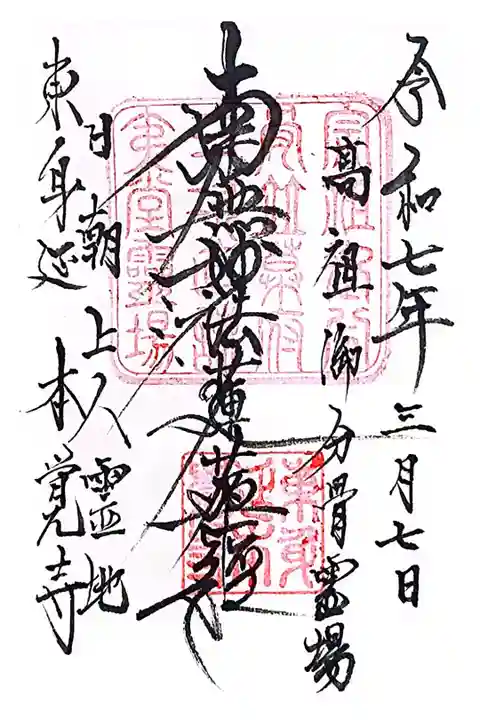 令和七年三月七日
高祖御分骨霊場
南無妙法蓮華経
日朝上人霊地
東身延 本覚寺